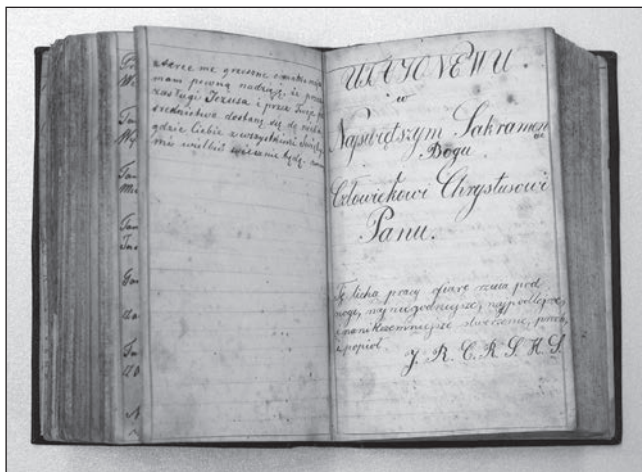 serce me grzeszne o matko moja
mam pewną nadzieję, iż przez
zasługi Jezusa i przez Twoje po
średnictwo dostanę się do nieba
gdzie Ciebie z wszystkiemi Święty
mi wielbić wiecznie będę.
UTAJONEMU
w
Najświętszym Sakramen
cie
Bogu
Człowiekowi Chrystusowi
Panu.
Tę lichą pracy ofiarę rzuca pod
nogi, najniegodniejsze, najpodlejsze,
i najnikczemniejsze stworzenie, proch,
i popiół.
J. R. C. R. S. H. S.